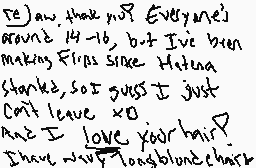 re) aw, thank you! Everyone's
around 14-16, but I've been
making Flips since Hatena
started, so I guess I just
can't leave xD
And I love your hair!
I have wavy long blonde hair